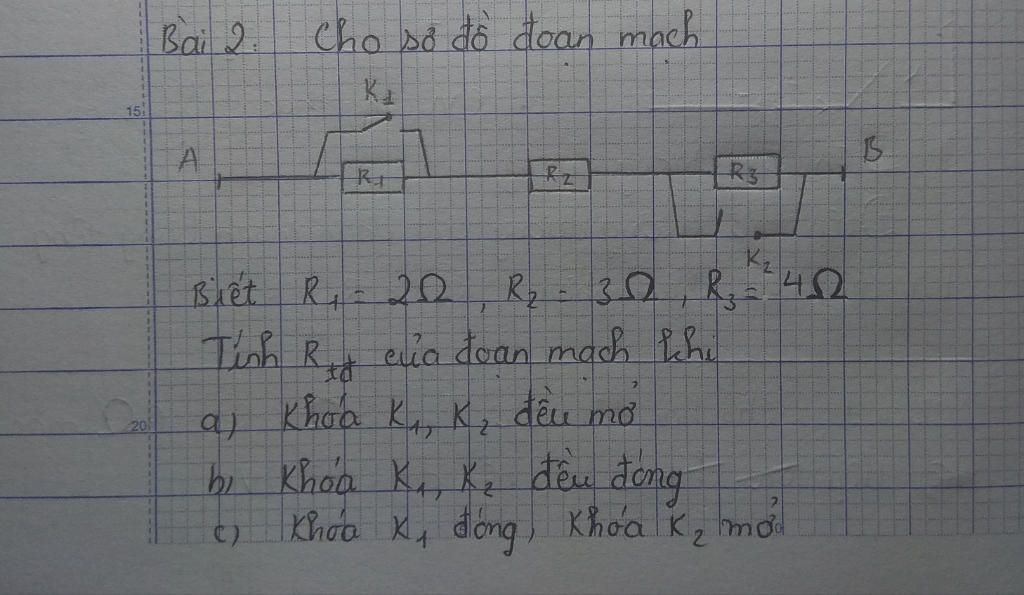 Bài 2: Cho sơ đồ đoạn mạch
15
K1
A
R1
R2
R3
B
K2
Biết R1 = 2Ω, R2 = 3Ω, R3 = 4Ω
Tính Rtđ của đoạn mạch khi
a) Khóa K1, K2 đều mở
20
b) Khóa K1, K2 đều đóng
c) Khóa K1 đóng, Khóa K2 mở